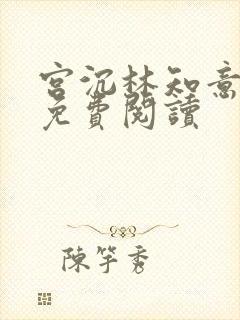 宫沉林知意
免費閱讀
陳竽秀